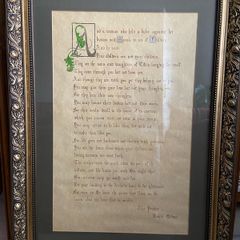 And a woman who held a babe against her
bosom said Speak to us of Children
And he said
Your children are not your children
They are the sons and daughters of Life's longing for itself
They come through you but not from you
And though they are with you yet they belong not to you
You may give them your love but not your thoughts
For they have their own thoughts
You may house their bodies but not their souls
For their souls dwell in the house of
which you cannot visit not even in your dreams
You may strive to be like them but seek not
to make them like you
For life goes not backward nor tarries with yesterday
You are the bows from which your children as
living arrows are sent forth
The archer sees the mark upon the path of the
infinite and He bends you with His might that
His arrows may go swift and far
Let your bending in the Archer's hand be for gladness
For even as He loves the arrow that flies so
The Prophet
Kahlil Gibran